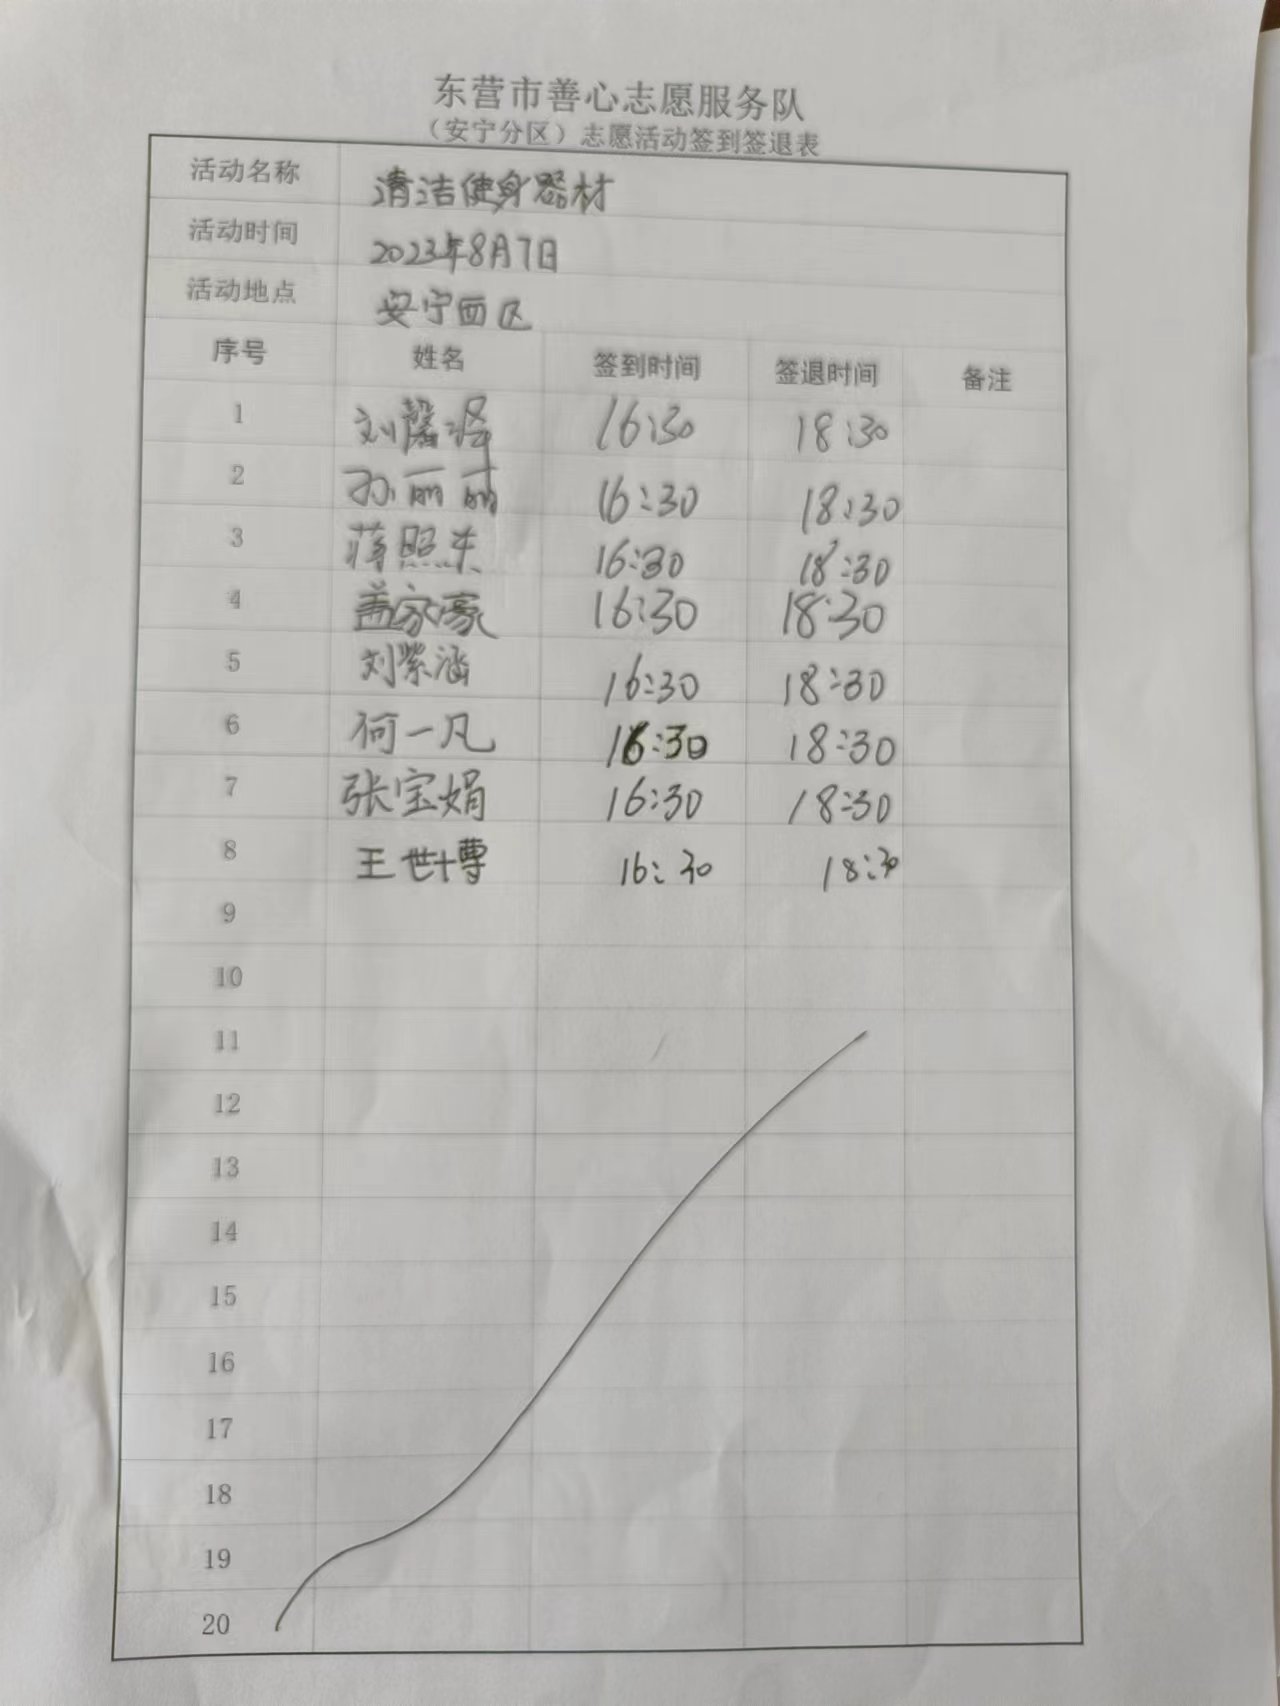 东营市善心志愿服务队
（安宁分区）志愿活动签到签退表
活动名称 清洁健身器材
活动时间 2023年8月7日
活动地点 安宁西区
序号 姓名 签到时间 签退时间 备注
1 刘馨泽 16:30 18:30
2 孙丽丽 16:30 18:30
3 蒋照东 16:30 18:30
4 盖家豪 16:30 18:30
5 刘紫涵 16:30 18:30
6 何一凡 16:30 18:30
7 张宝娟 16:30 18:30
8 王世博 16:30 18:30
9
10
11
12
13
14
15
16
17
18
19
20